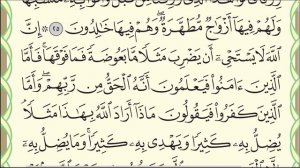 وَلَهُمْ فِيهَا أَزْوَاجٌ مُطَهَّرَةٌ وَهُمْ فِيهَا خَالِدُونَ ٢٥ إِنَّ
اللَّهَ لَا يَسْتَحْيِي أَنْ يَضْرِبَ مَثَلًا مَا بَعُوضَةً فَمَا فَوْقَهَا فَأَمَّا
الَّذِينَ آمَنُوا فَيَعْلَمُونَ أَنَّهُ الْحَقُّ مِنْ رَبِّهِمْ وَأَمَّا
الَّذِينَ كَفَرُوا فَيَقُولُونَ مَاذَا أَرَادَ اللَّهُ بِهَذَا مَثَلًا
يُضِلُّ بِهِ كَثِيرًا وَيَهْدِي بِهِ كَثِيرًا وَمَا يُضِلُّ بِهِ